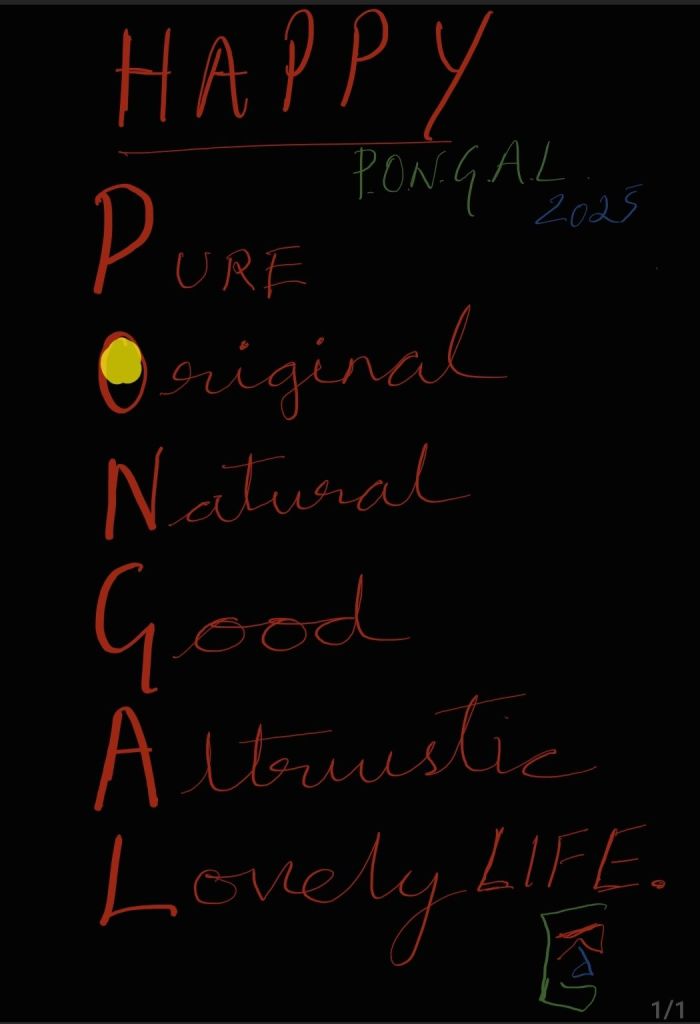 HAPPY
P.O.N.G.A.L.
2025
PURE
Original
Natural
Good
Altruistic
Lovely LIFE.
1/1